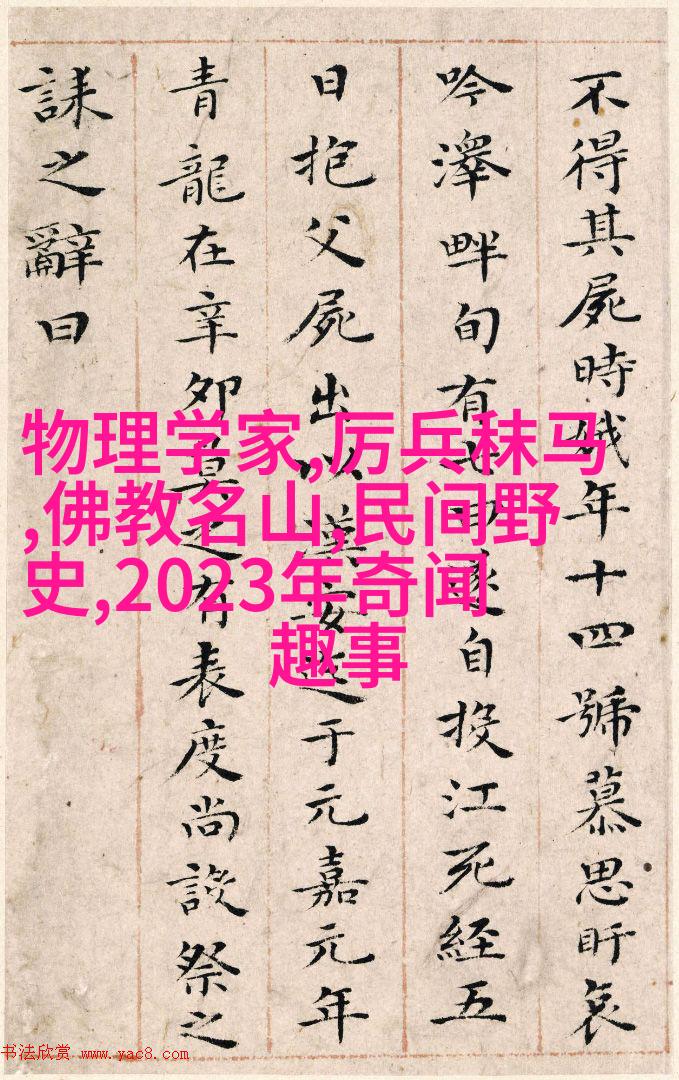 不得其屍時娥年十四號慕思盱哀
吟澤畔旬有七日遂自投江死經五
日抱父屍出以漢安迄于元嘉元年
青龍在辛卯莫之有表度尚設祭之
誄之辭曰
物理学家,厉兵秣马
,佛教名山,民间野
史,2023年奇闻
趣事
书法欣赏 www.yac8.com